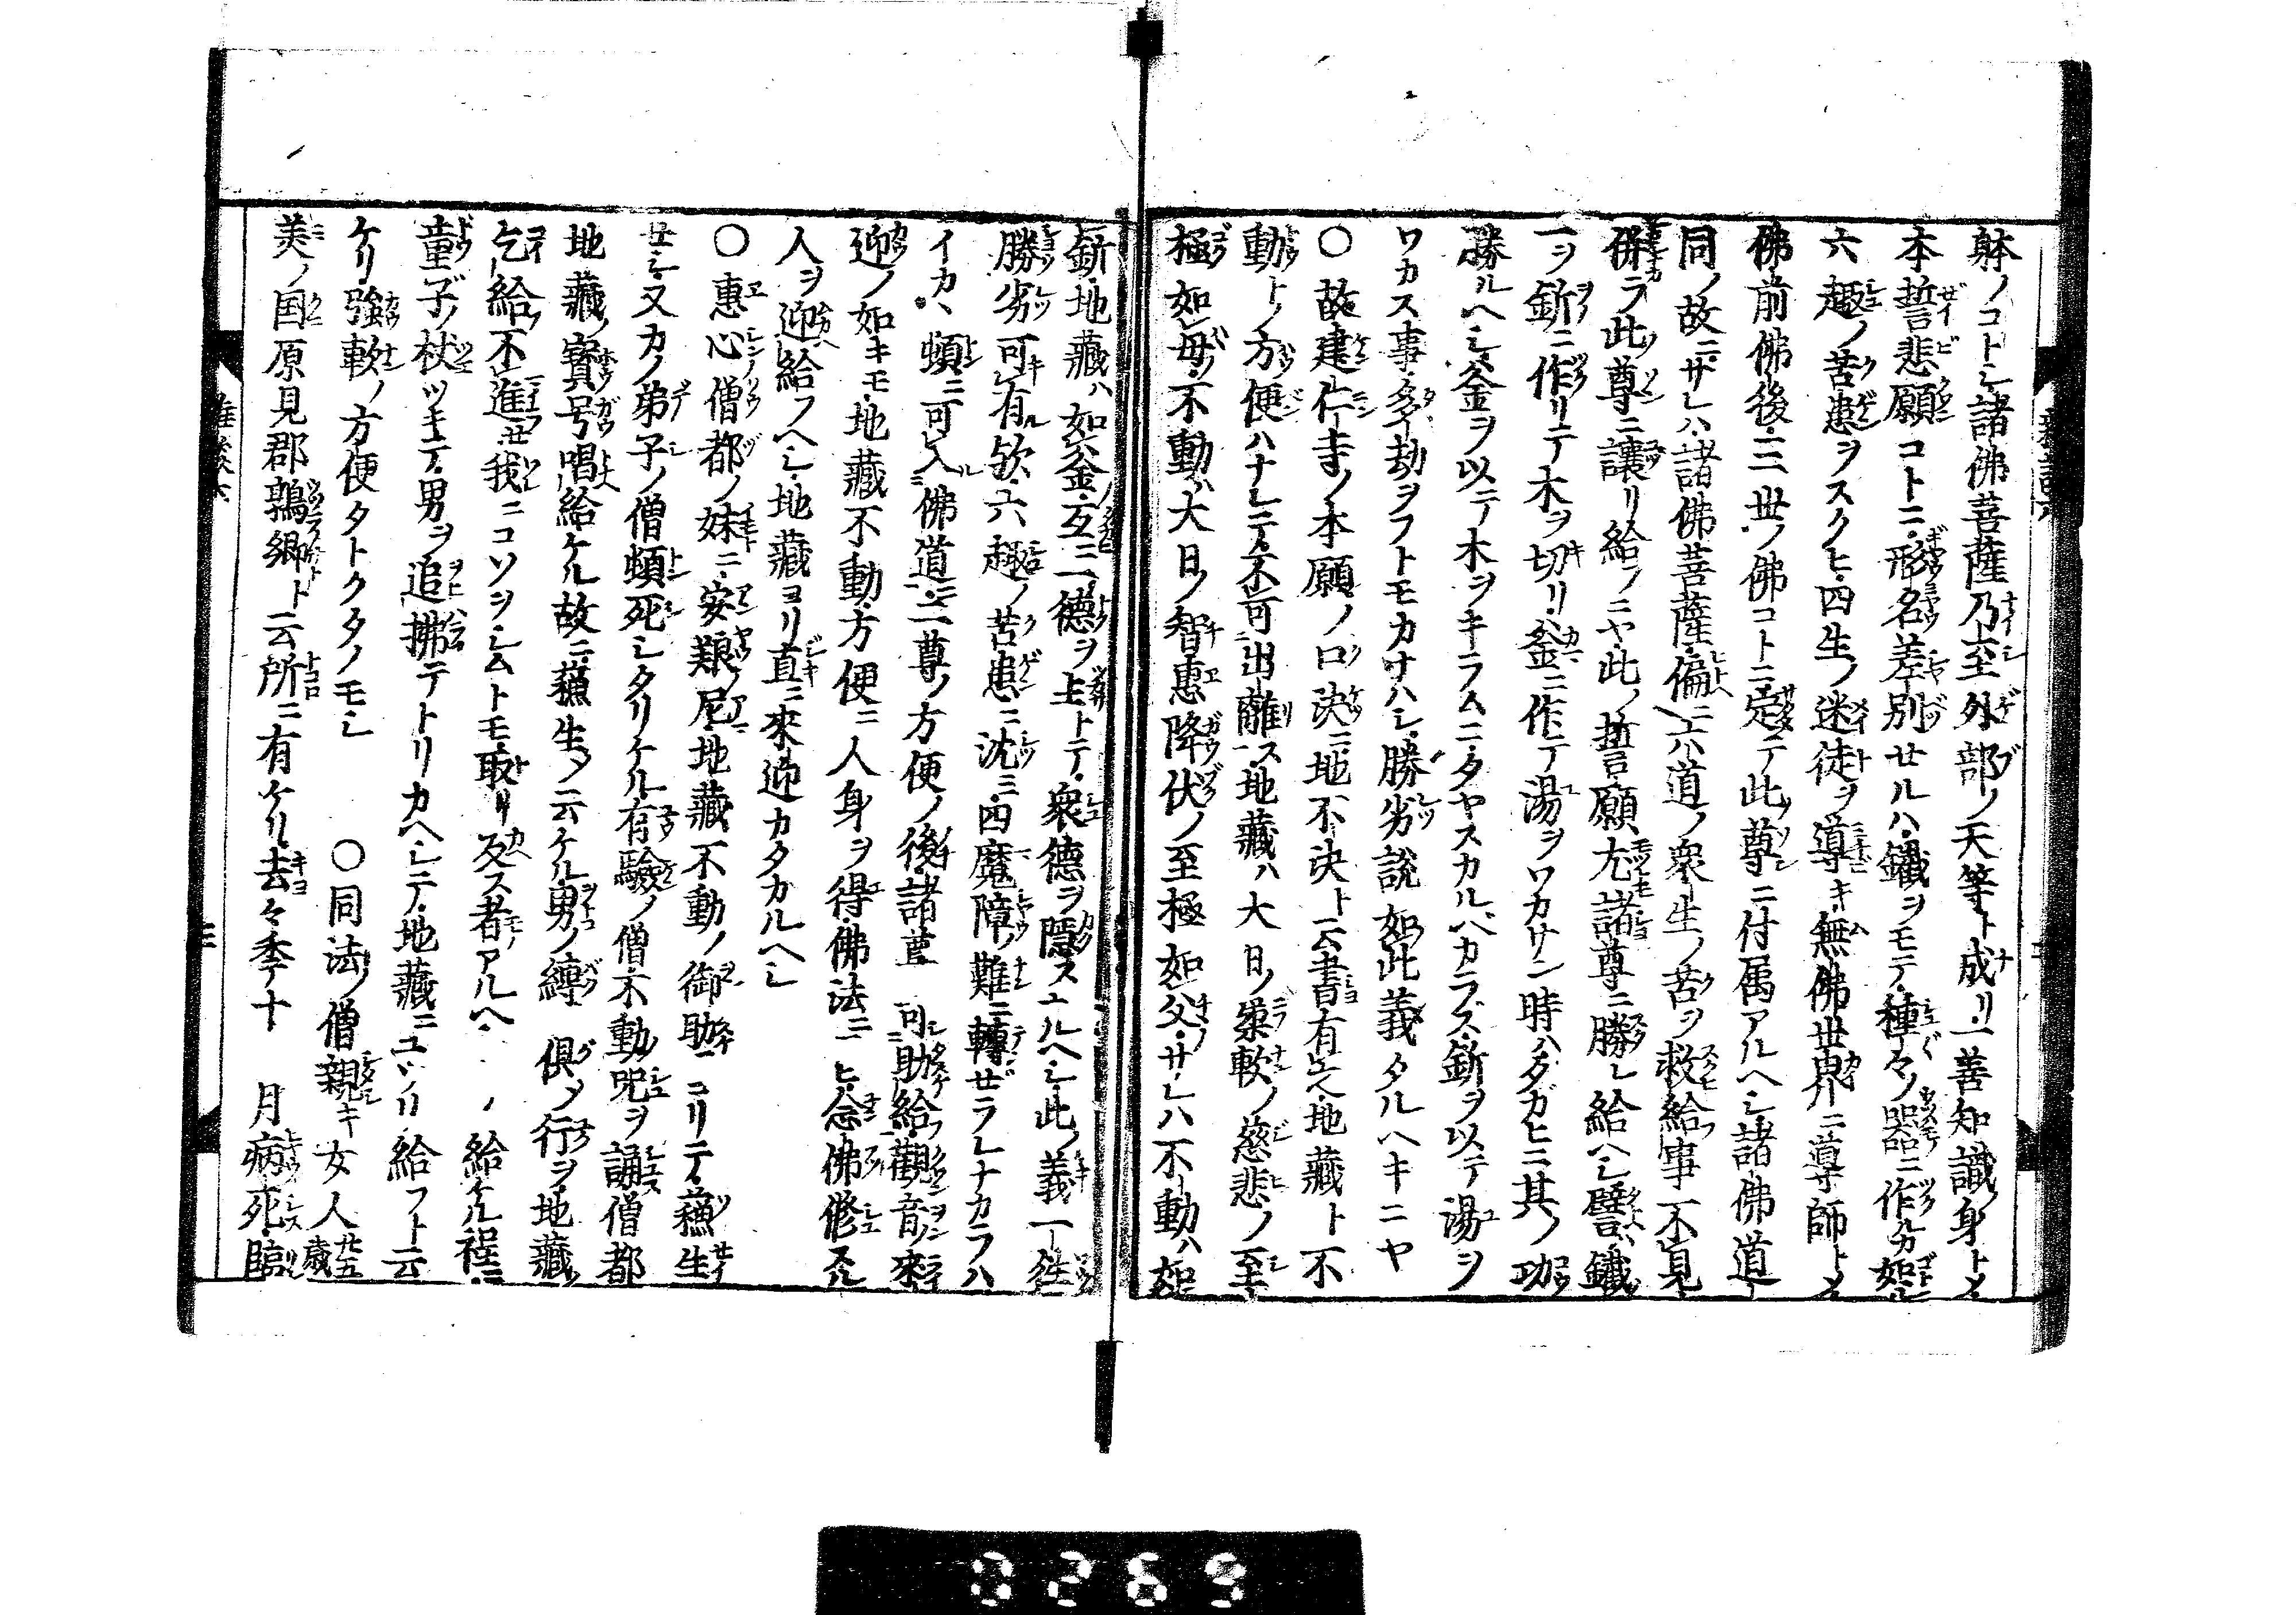 躰ノコトシ諸佛菩薩乃至外部ノ天等ト成リ一善知識ノ身トメ
本誓悲願コトニ形名差別セルハ鐵ヲモテ種々ノ器ニ作ルカ如シ
六趣ノ苦患ヲスクヒ四生ノ迷徒ヲ導キ無佛世界ニ導師トメ
佛前佛後ニ三世ノ佛コトニ定テ此尊ニ付属アルヘシ諸佛道
同ノ故ニサレハ諸佛菩薩偏ニ六道ノ衆生ノ苦ヲ救給事不見
併ラ此尊ニ讓リ給ノニヤ此ノ誓願尤諸尊ニ勝レ給ヘシ譬ハ鐵
一ヲ釿ニ作リテ木ヲ切リ釜ニ作テ湯ヲワカサン時ハタガヒニ其ノ功
勝ルヘシ釜ヲ以テ木ヲキラムニタヤスカルヘカラズ釿ヲ以テ湯ヲ
ワカス事多劫ヲフトモカナハシ勝劣説如此義タルヘキニヤ
〇故建仁寺ノ本願ノ口決ニ地不決ト云書有之地藏ト不
動トノ方便ハナレテ不可出離ス地藏ハ大日ノ柔軟ノ慈悲ノ至
極如母不動ハ大日ノ智惠降伏ノ至極如父サレハ不動ハ如
釿地藏ハ如釜互ニ一德ヲ主トテ衆德ヲ隱スユルヘシ此ノ義一往ノ
勝劣可有歟六趣ノ苦患ニ沈ミ四魔障ノ難ニ轉ゼラレナカラハ
イカヽ頓ニ可入佛道ニ二尊ノ方便ノ後諸尊可助給觀音ノ來
迎ノ如キモ地藏不動方便ニ人身ヲ得佛法ニヒ念佛修スル
人ヲ迎給フヘシ地藏ヨリ直ニ來迎カタカルヘシ
〇惠心僧都ノ妹ニ安養ノ尼地藏不動ノ御助ニコリテ蘓生
セシ又カノ弟子ノ僧頓死シタリケル有驗ノ僧不動呪ヲ誦僧都
地藏ノ寳号唱給ケル故ニ蘓生ノ云ケル男ノ縛倶ノ行ヲ地藏
乞給不進世我ニコソヲシムトモ取リ反ス者アルヘノ給ケル程ニ
童子ノ杖ツキテ男ヲ追拂テトリカヘシテ地藏ニユツリ給フト云
ケリ強軟ノ方便タトクタノモシ 〇同法ノ僧親キ女人廿五歳
美ノ国原見郡鶉郷ト云所ニ有ケリ去々季十 月病死臨